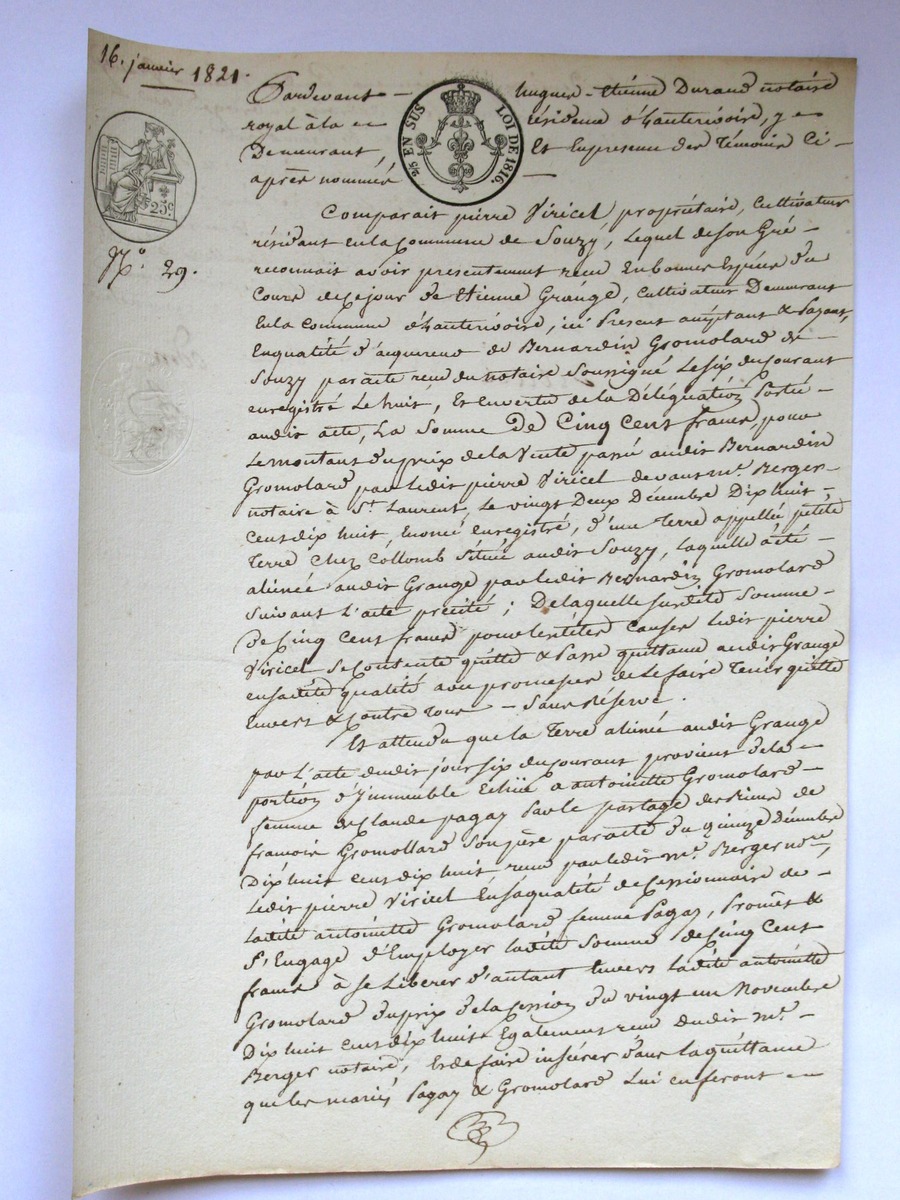 16. janvier 1821.
Pardevant – hugues-Etiénne Durand notaire
royal à la résidence d'hauterivoire, y
Demeurant, Et En presence des Témoins Ci-
après nommés –
2/5 EN SUS
LOI DE 1816.
25c.
N.o 29.
Comparait pierre Viricel propriétaire, Cultivateur
résidant en la Commune de Souzy, lequel de son Gré –
reconnait avoir presentement recu En bonnes Espèces du
Cours de ce jour de Etienne Grange, Cultivateur Demeurant
En la commune d'hauterivoire, ici Présent acceptant & Payant,
En qualité d'acquereur de Bernardin Gromolard de
Souzy par acte recu du notaire Soussigné le Six du Courant
enregistré le huit, Et en vertu de la Délégation Portée –
audit acte, La Somme De Cinq Cent francs, pour
le montant du prix de la Vente passé audit Bernardin
Gromolard par ledit pierre Viricel devant m.e Berger
notaire à S.t Laurent, le vingt Deux Décembre Dix huit –
Cent dix huit, Enoncé enregistré, d'une Terre appellée petite
Terre Chez Collomb Située audit Souzy, laquelle a été –
alienée audit Grange par ledit Bernardin Gromolard
Suivant l'acte précité; De laquelle Susdite Somme –
de Cinq Cent francs pour les dites Causes ledit pierre
Viricel Se Contente quitte & Passe quittance audit Grange
en sa dite qualité avec promesse de le faire Tenir quitte
Envers & Contre Tous – Sans Réserve.
Et attendu que la Terre alienée audit Grange
par l'acte dudit jour six du Courant provient de la
portion d'Immeuble Echüe a antoinette Gromolard –
femme de Claude pagay Par le partage des Biens de
francois Gromollard Son père par acte du quinze Décembre
Dix huit Cent dix huit recu par ledit m.e Berger n.re,
Ledit pierre Viricel En sa qualité de Cessionnaire de –
ladite antoinette Gromolard femme Pagay, Promêt &
S'Engage d'Employer ladite Somme De Cinq Cent
francs à se Liberer d'autant Envers ladite antoinette
Gromolard du prix de la Cession du vingt un Novembre
Dix huit Cent dix huit Egalement recu dudit m.e –
Berger notaire, Et de faire insérer dans la quittance
que les mariés Pagay & Gromolard Lui en feront –